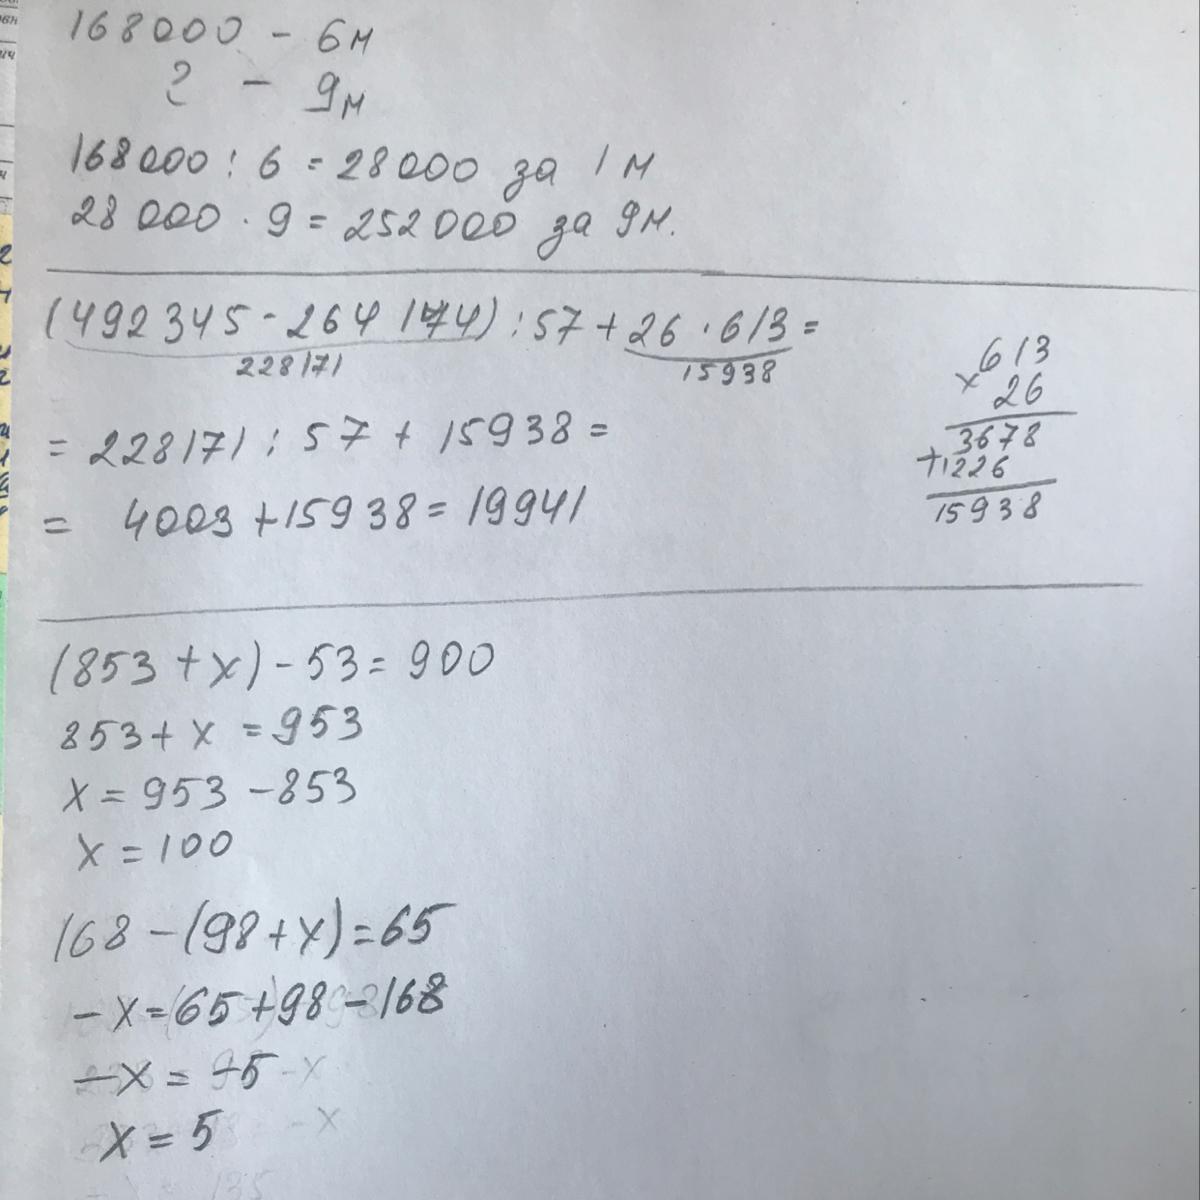 168000 - 6м
? - 9м
168000 : 6 = 28000 за 1 м
28 000 · 9 = 252 000 за 9м.
(492 345 - 264 174) : 57 + 26 · 613 =
228171
15938
= 228171 : 57 + 15938 =
= 4003 + 15938 = 19941
613
× 26
3678
+1226
15938
(853 + x) - 53 = 900
853 + x = 953
x = 953 - 853
x = 100
168 - (98 + x) = 65
- x = 65 + 98 - 168
- x = -5
x = 5